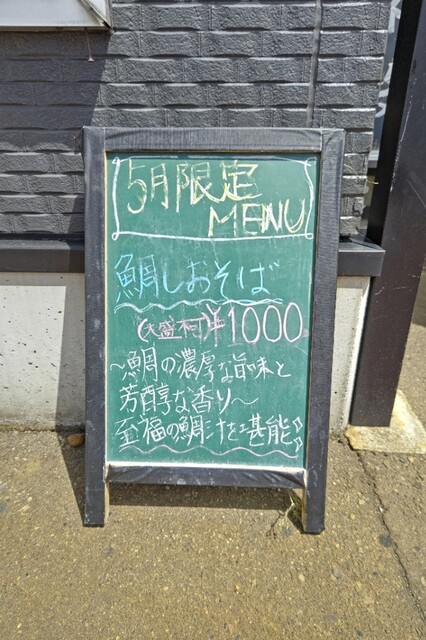 5月限定
MENU
鯛しおそば
(大盛不可)¥1000
〜鯛の濃厚な旨味と
芳醇な香り〜
至福の鯛汁を堪能♪